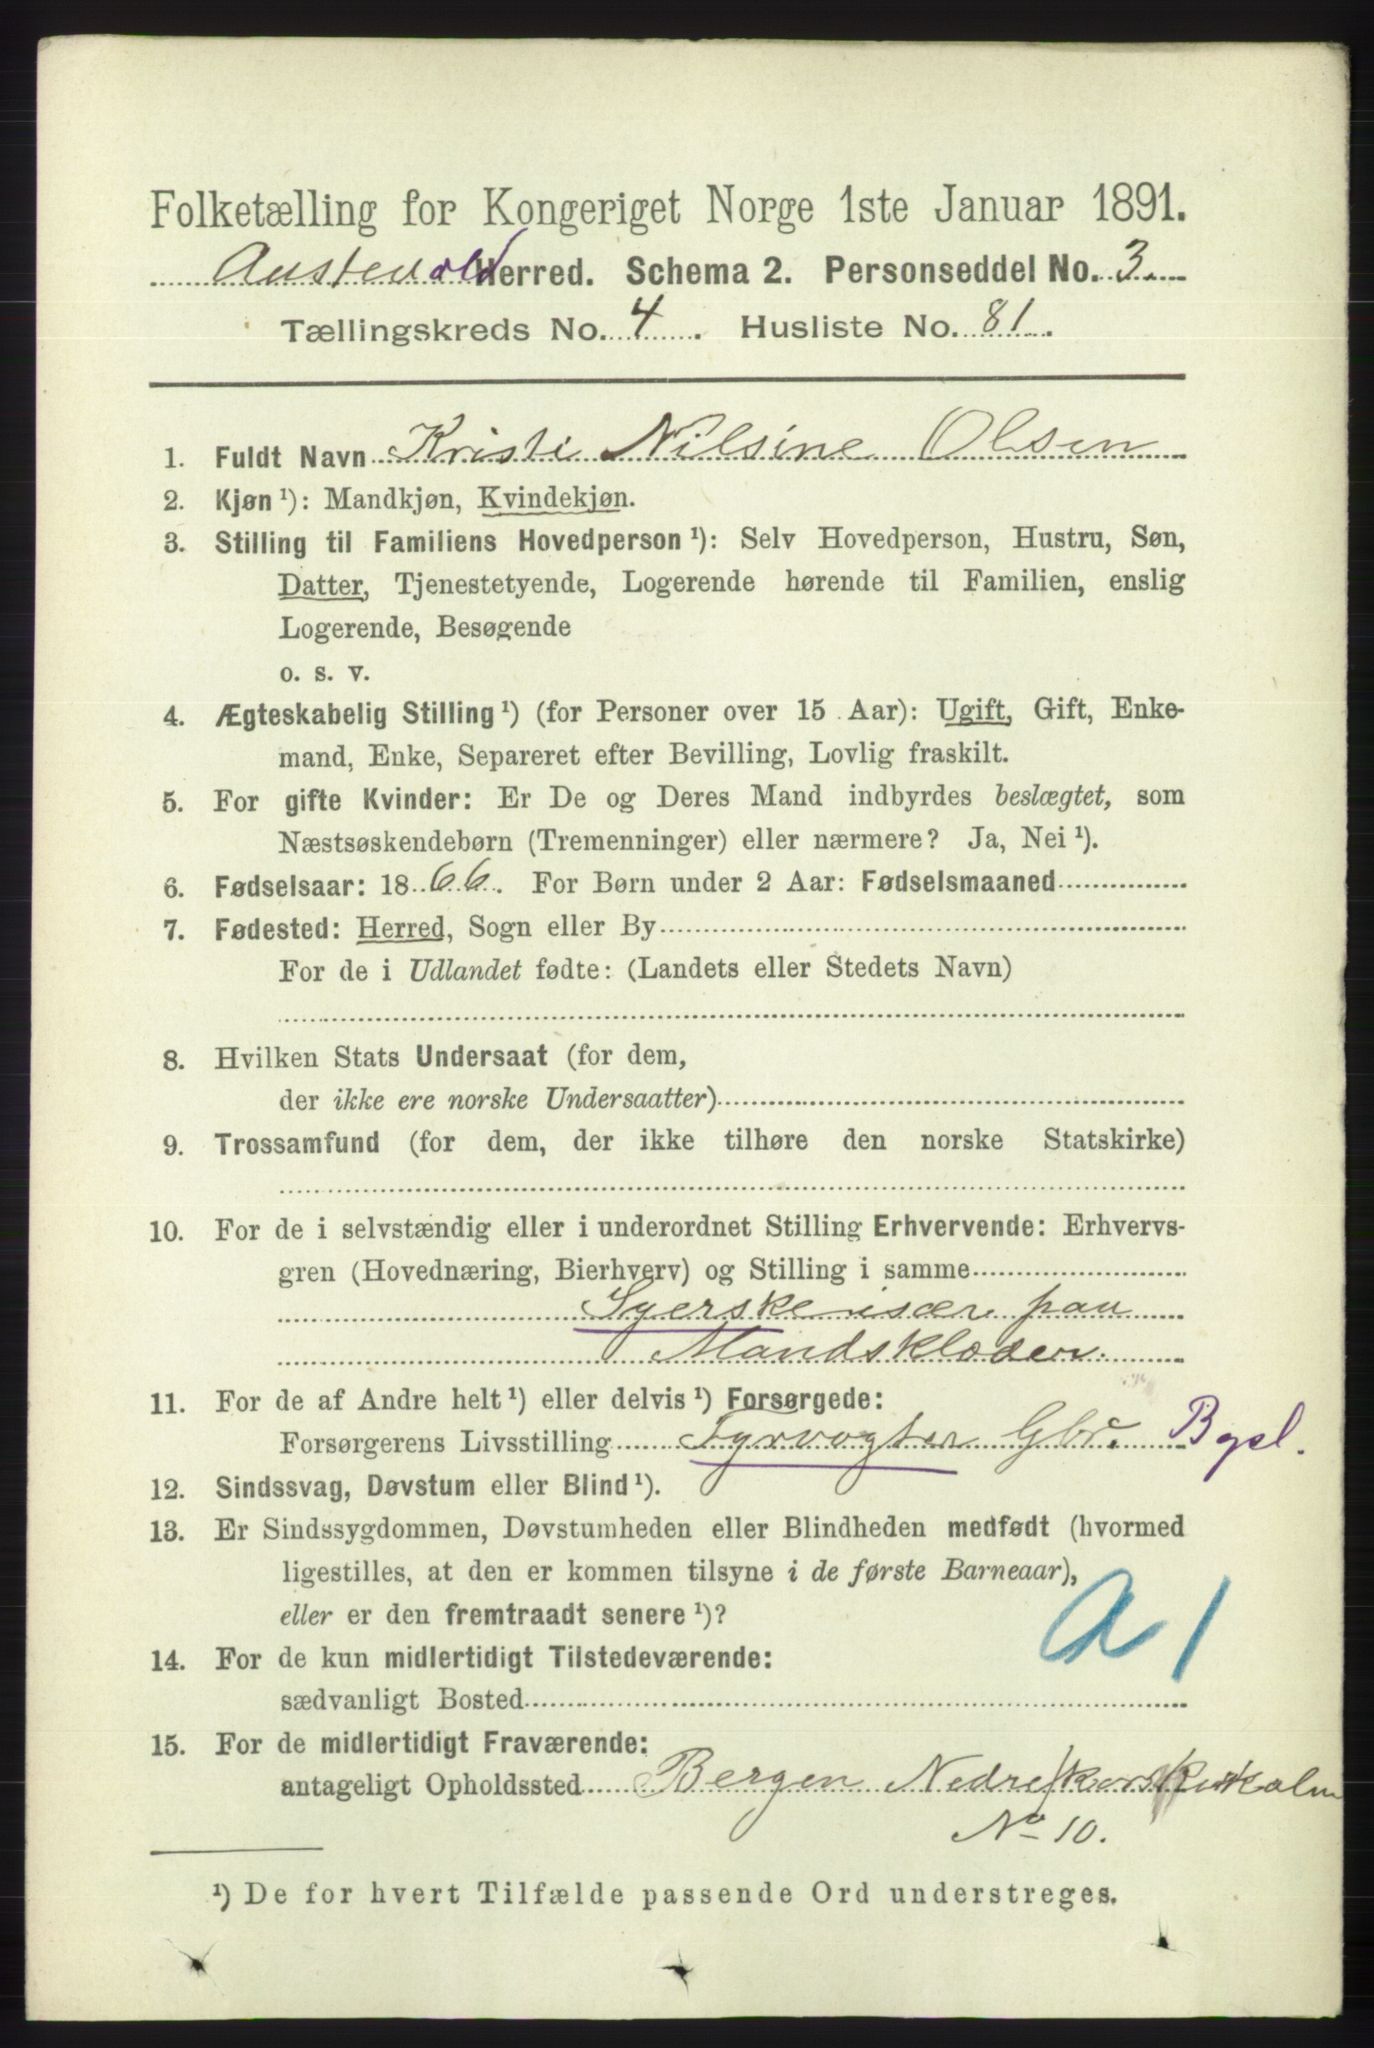 Folketælling for Kongeriget Norge 1ste Januar 1891.
Austevold Herred. Schema 2. Personseddel No. 3.
Tællingskreds No. 4. Husliste No. 81.
1. Fuldt Navn Kristi Nilsine Olsen
2. Kjøn ¹): Mandkjøn, Kvindekjøn.
3. Stilling til Familiens Hovedperson ¹): Selv Hovedperson, Hustru, Søn,
Datter, Tjenestetyende, Logerende hørende til Familien, enslig
Logerende, Besøgende
o. s. v.
4. Ægteskabelig Stilling ¹) (for Personer over 15 Aar): Ugift, Gift, Enke-
mand, Enke, Separeret efter Bevilling, Lovlig fraskilt.
5. For gifte Kvinder: Er De og Deres Mand indbyrdes beslægtet, som
Næstsøskendebørn (Tremenninger) eller nærmere? Ja, Nei ¹).
6. Fødselsaar: 1866. For Børn under 2 Aar: Fødselsmaaned
7. Fødested: Herred, Sogn eller By
For de i Udlandet fødte: (Landets eller Stedets Navn)
8. Hvilken Stats Undersaat (for dem,
der ikke ere norske Undersaatter)
9. Trossamfund (for dem, der ikke tilhøre den norske Statskirke)
10. For de i selvstændig eller i underordnet Stilling Erhvervende: Erhvervs-
gren (Hovednæring, Bierhverv) og Stilling i samme
Syerske især paa
Mandsklæder.
11. For de af Andre helt ¹) eller delvis ¹) Forsørgede:
Forsørgerens Livsstilling Fyrvogter Gbr. Bysl.
12. Sindssvag, Døvstum eller Blind ¹).
13. Er Sindssygdommen, Døvstumheden eller Blindheden medfødt (hvormed
ligestilles, at den er kommen tilsyne i de første Barneaar),
eller er den fremtraadt senere ¹)?
a 1
14. For de kun midlertidigt Tilstedeværende:
sædvanligt Bosted
15. For de midlertidigt Fraværende:
antageligt Opholdssted Bergen Nedre
No 10.
¹) De for hvert Tilfælde passende Ord understreges.